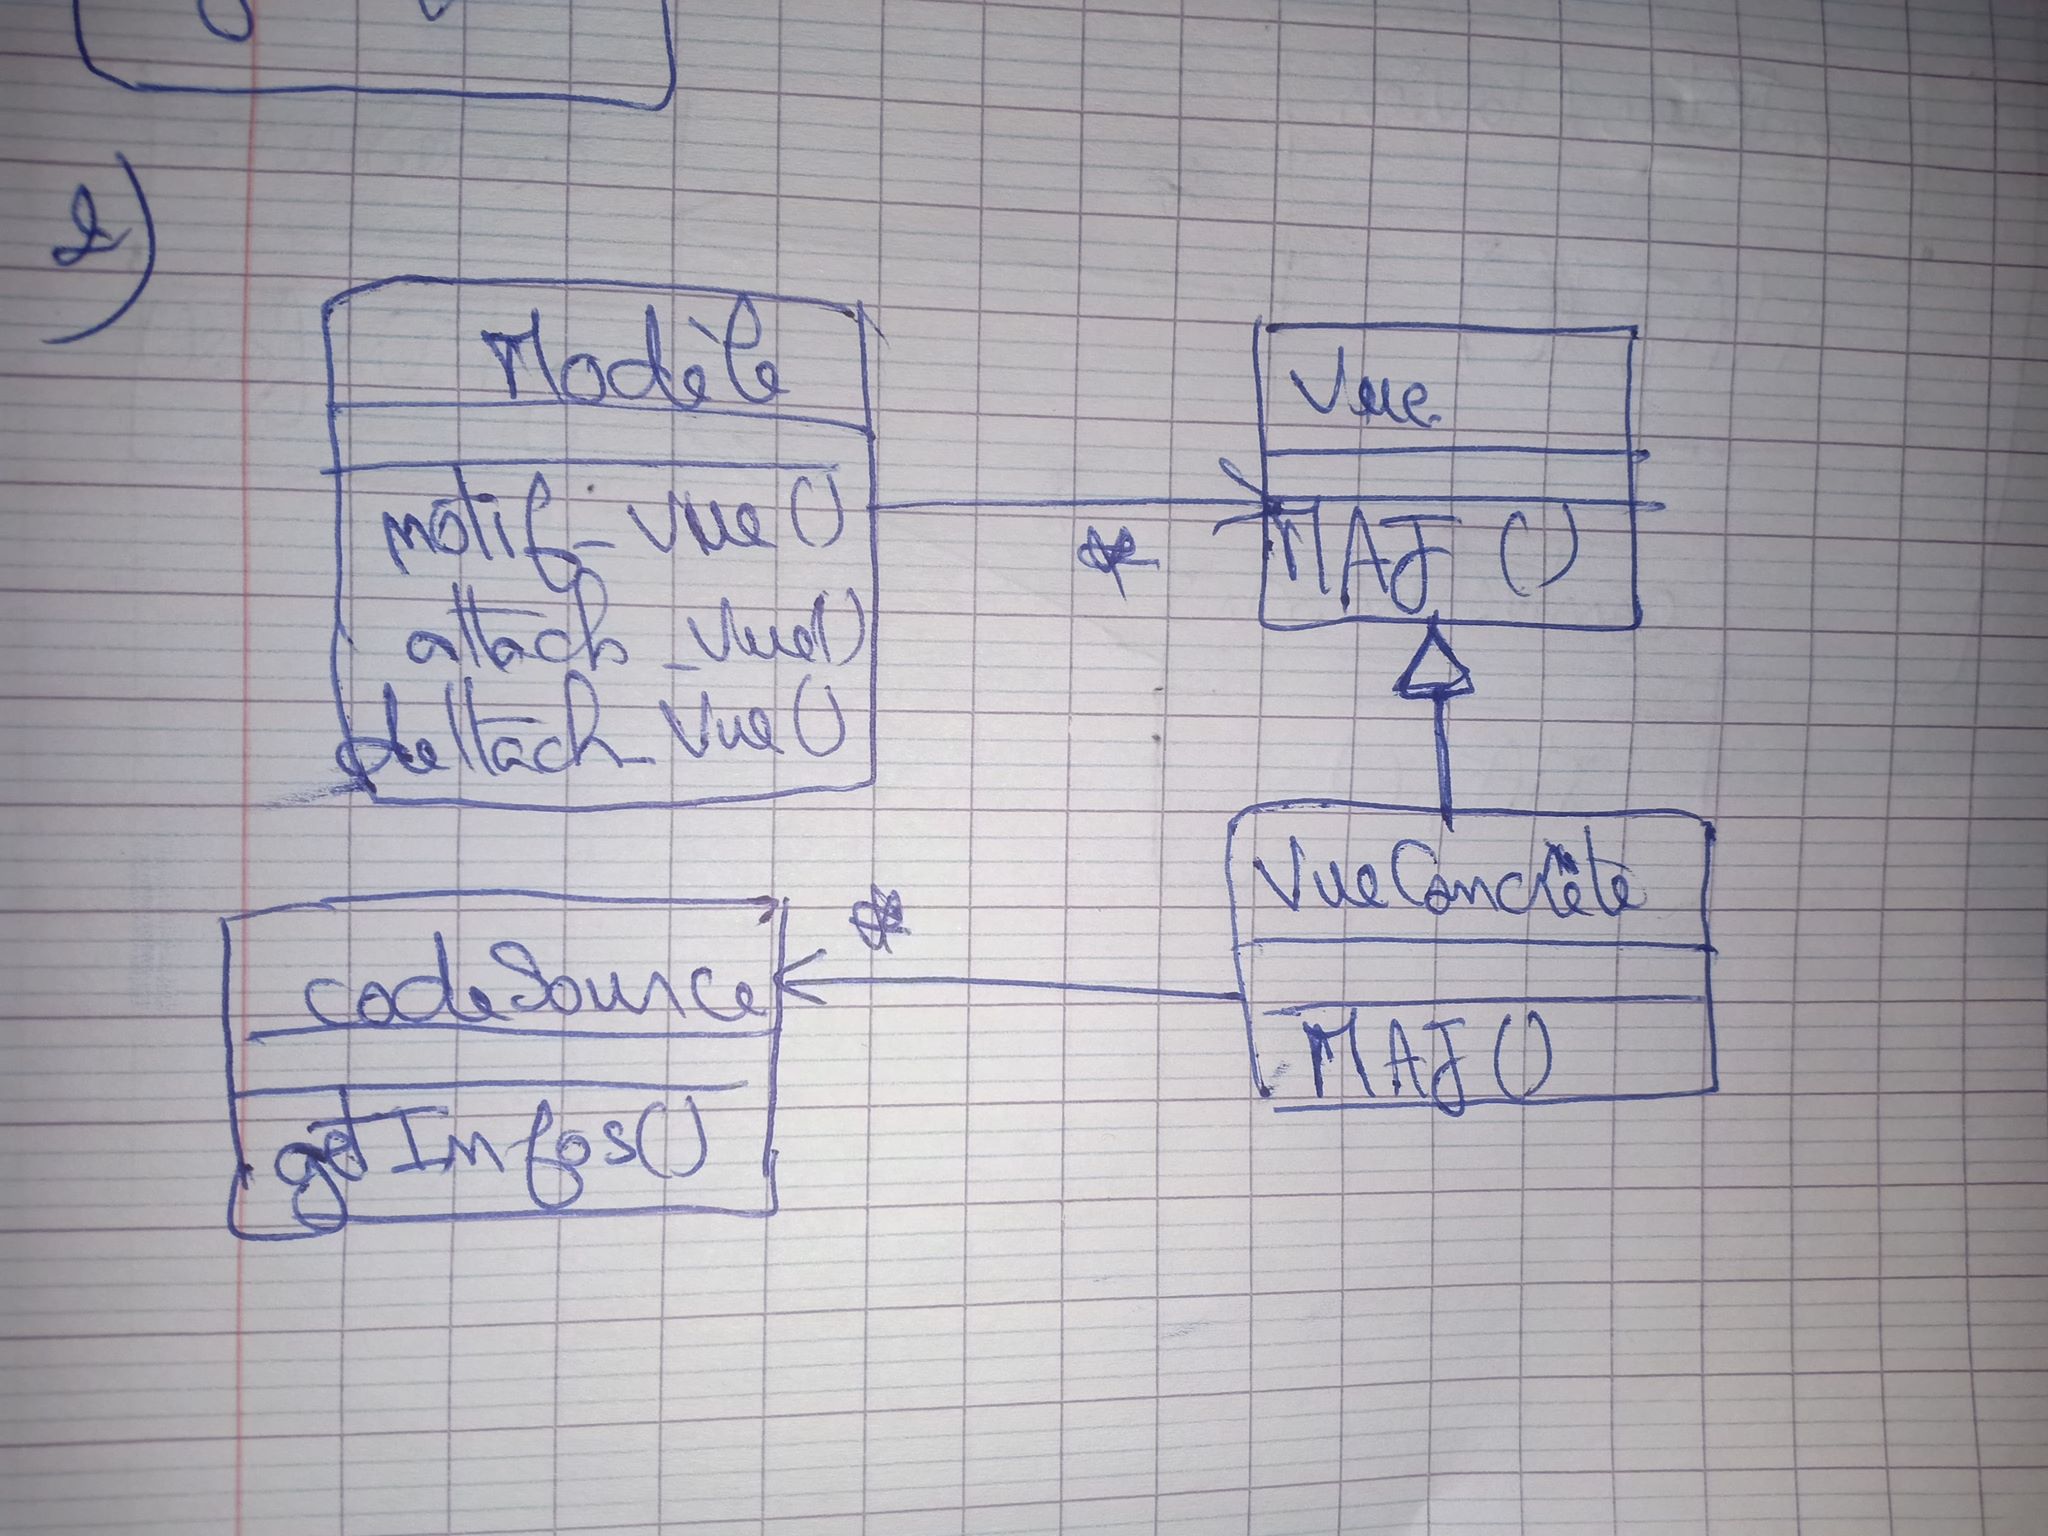 2)
Modèle
notif_vue()
attach_vue()
dettach_vue()
Vue
MAJ ()
*
VueConcrète
MAJ ()
*
codeSource
getInfos()